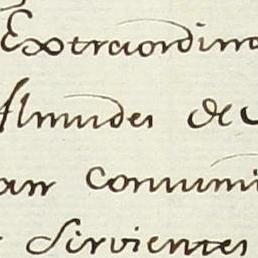 Extraordina
Almudes de
an comuni
Sirvientes